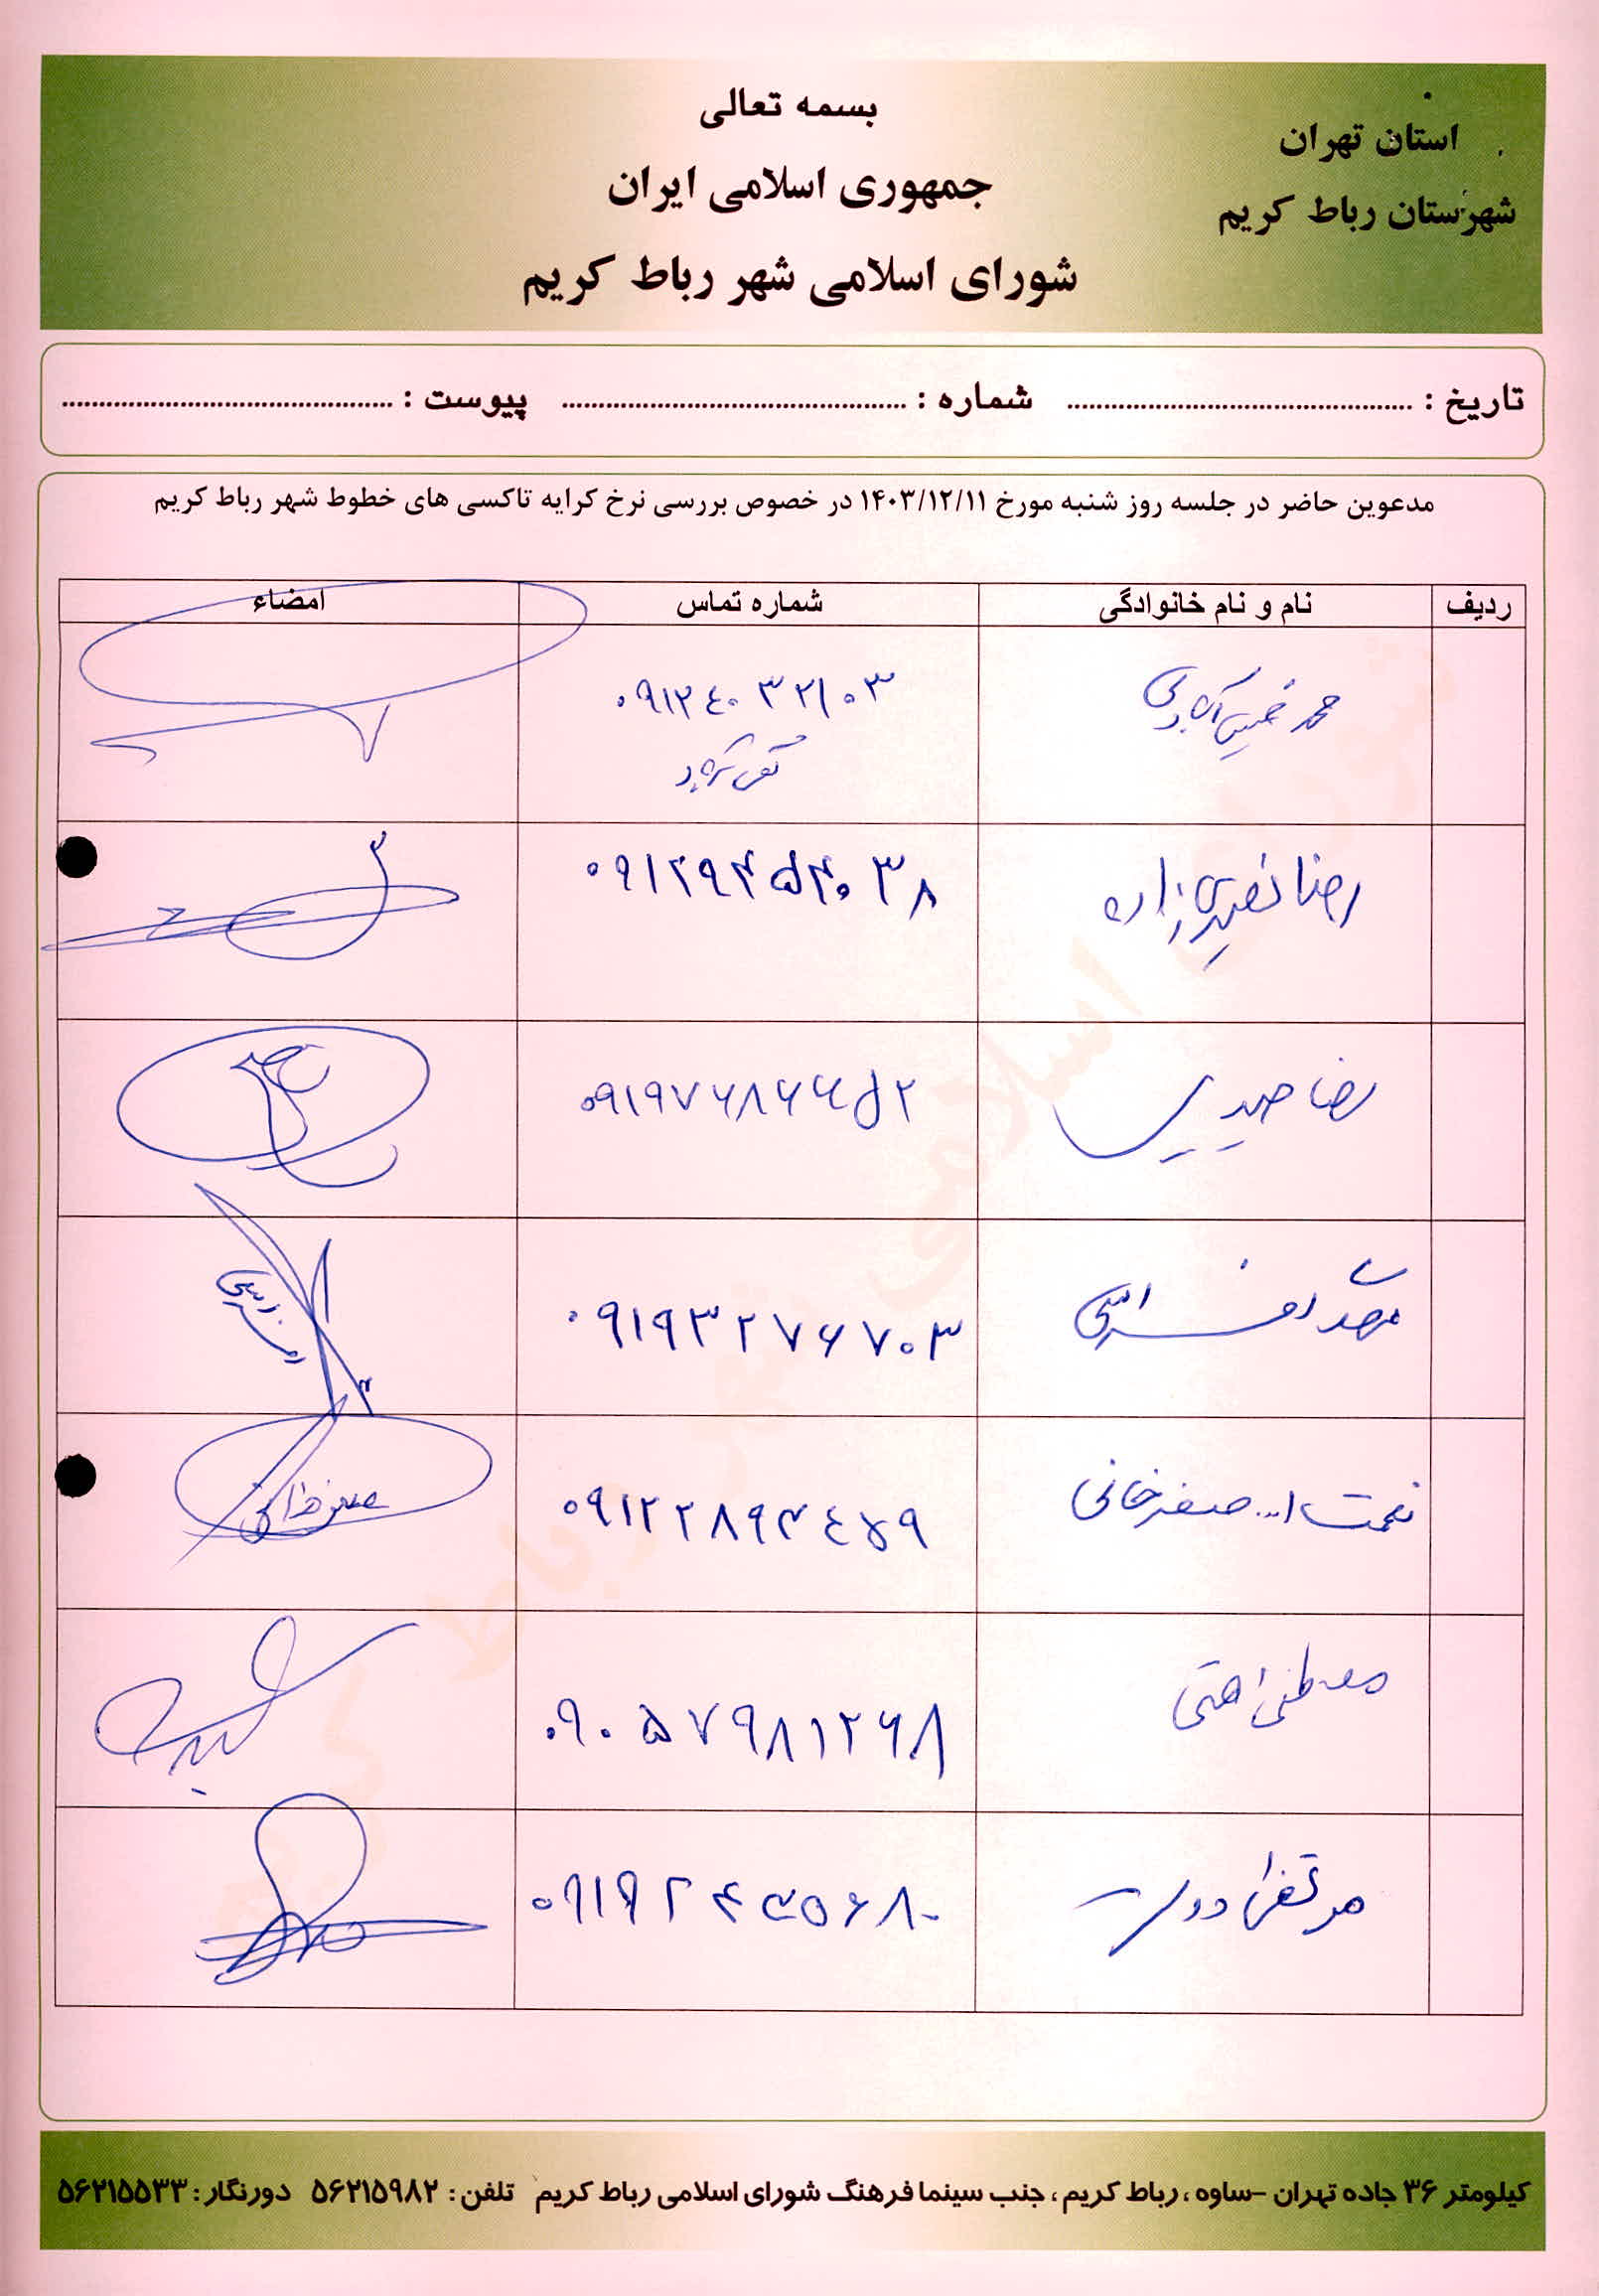 بسمه تعالی
استان تهران
جمهوری اسلامی ایران
شهرستان رباط کریم
شورای اسلامی شهر رباط کریم
تاریخ : .......... شماره : .......... پیوست : ..........
مدعوین حاضر در جلسه روز شنبه مورخ ۱۴۰۳/۱۲/۱۱ در خصوص بررسی نرخ کرایه تاکسی های خطوط شهر رباط کریم
ردیف نام و نام خانوادگی شماره تماس امضاء
محمد ۰۹۱۲۴۰۳۲۱۰۳
رضا نصیری زاده ۰۹۱۲۹۴۵۴۰۳۸
رضا حیدری ۰۹۱۹۷۶۸۶۶۵۲
۰۹۱۹۳۲۷۶۷۰۳
نعمت ا... صفرخانی ۰۹۱۲۲۸۹۴۴۵۹ صفرخانی
مصطفی همتی ۰۹۰۵۷۹۸۱۲۶۸
مرتضی دولت ۰۹۱۹۲۴۳۵۶۸۰
شورای اسلامی شهر رباط کریم
کیلومتر ۳۶ جاده تهران -ساوه ، رباط کریم ، جنب سینما فرهنگ شورای اسلامی رباط کریم تلفن : ۵۶۲۱۵۹۸۲ دورنگار : ۵۶۲۱۵۵۳۳